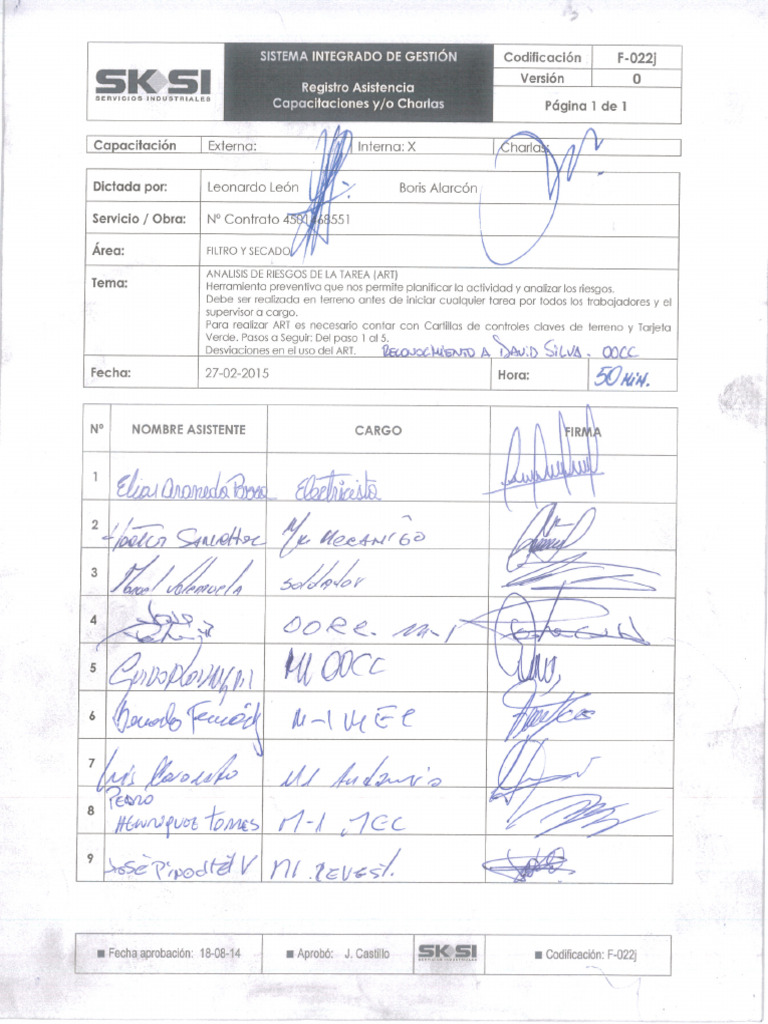 SK SI
SERVICIOS INDUSTRIALES
SISTEMA INTEGRADO DE GESTIÓN
Registro Asistencia
Capacitaciones y/o Charlas
Codificación F-022j
Versión 0
Página 1 de 1
Capacitación Externa: Interna: X Charlas:
Dictada por: Leonardo León Boris Alarcón
Servicio / Obra: Nº Contrato
Área: FILTRO Y SECADO
Tema: ANALISIS DE RIESGOS DE LA TAREA (ART)
Herramienta preventiva que nos permite planificar la actividad y analizar los riesgos.
Debe ser realizada en terreno antes de iniciar cualquier tarea por todos los trabajadores y el
supervisor a cargo.
Para realizar ART es necesario contar con Cartillas de controles claves de terreno y Tarjeta
Verde. Pasos a Seguir: Del paso 1 al 5.
Desviaciones en el uso del ART. RECONOCIMIENTO A DAVID SILVA. OOCC
Fecha: 27-02-2015 Hora: 50 MIN.
Nº NOMBRE ASISTENTE CARGO FIRMA
1 Elias Araneda Electricista
2 MECANICO
3 Valenzuela Soldador
4 M-1
5 M1 OOCC
6 M-1 MEC
7 Luis M1
8 PEDRO
HENRIQUEZ TORRES M-1 MEC
9 JOSÉ PINOCHET V M1 REVEST.
Fecha aprobación: 18-08-14 Aprobó: J. Castillo SK SI Codificación: F-022j